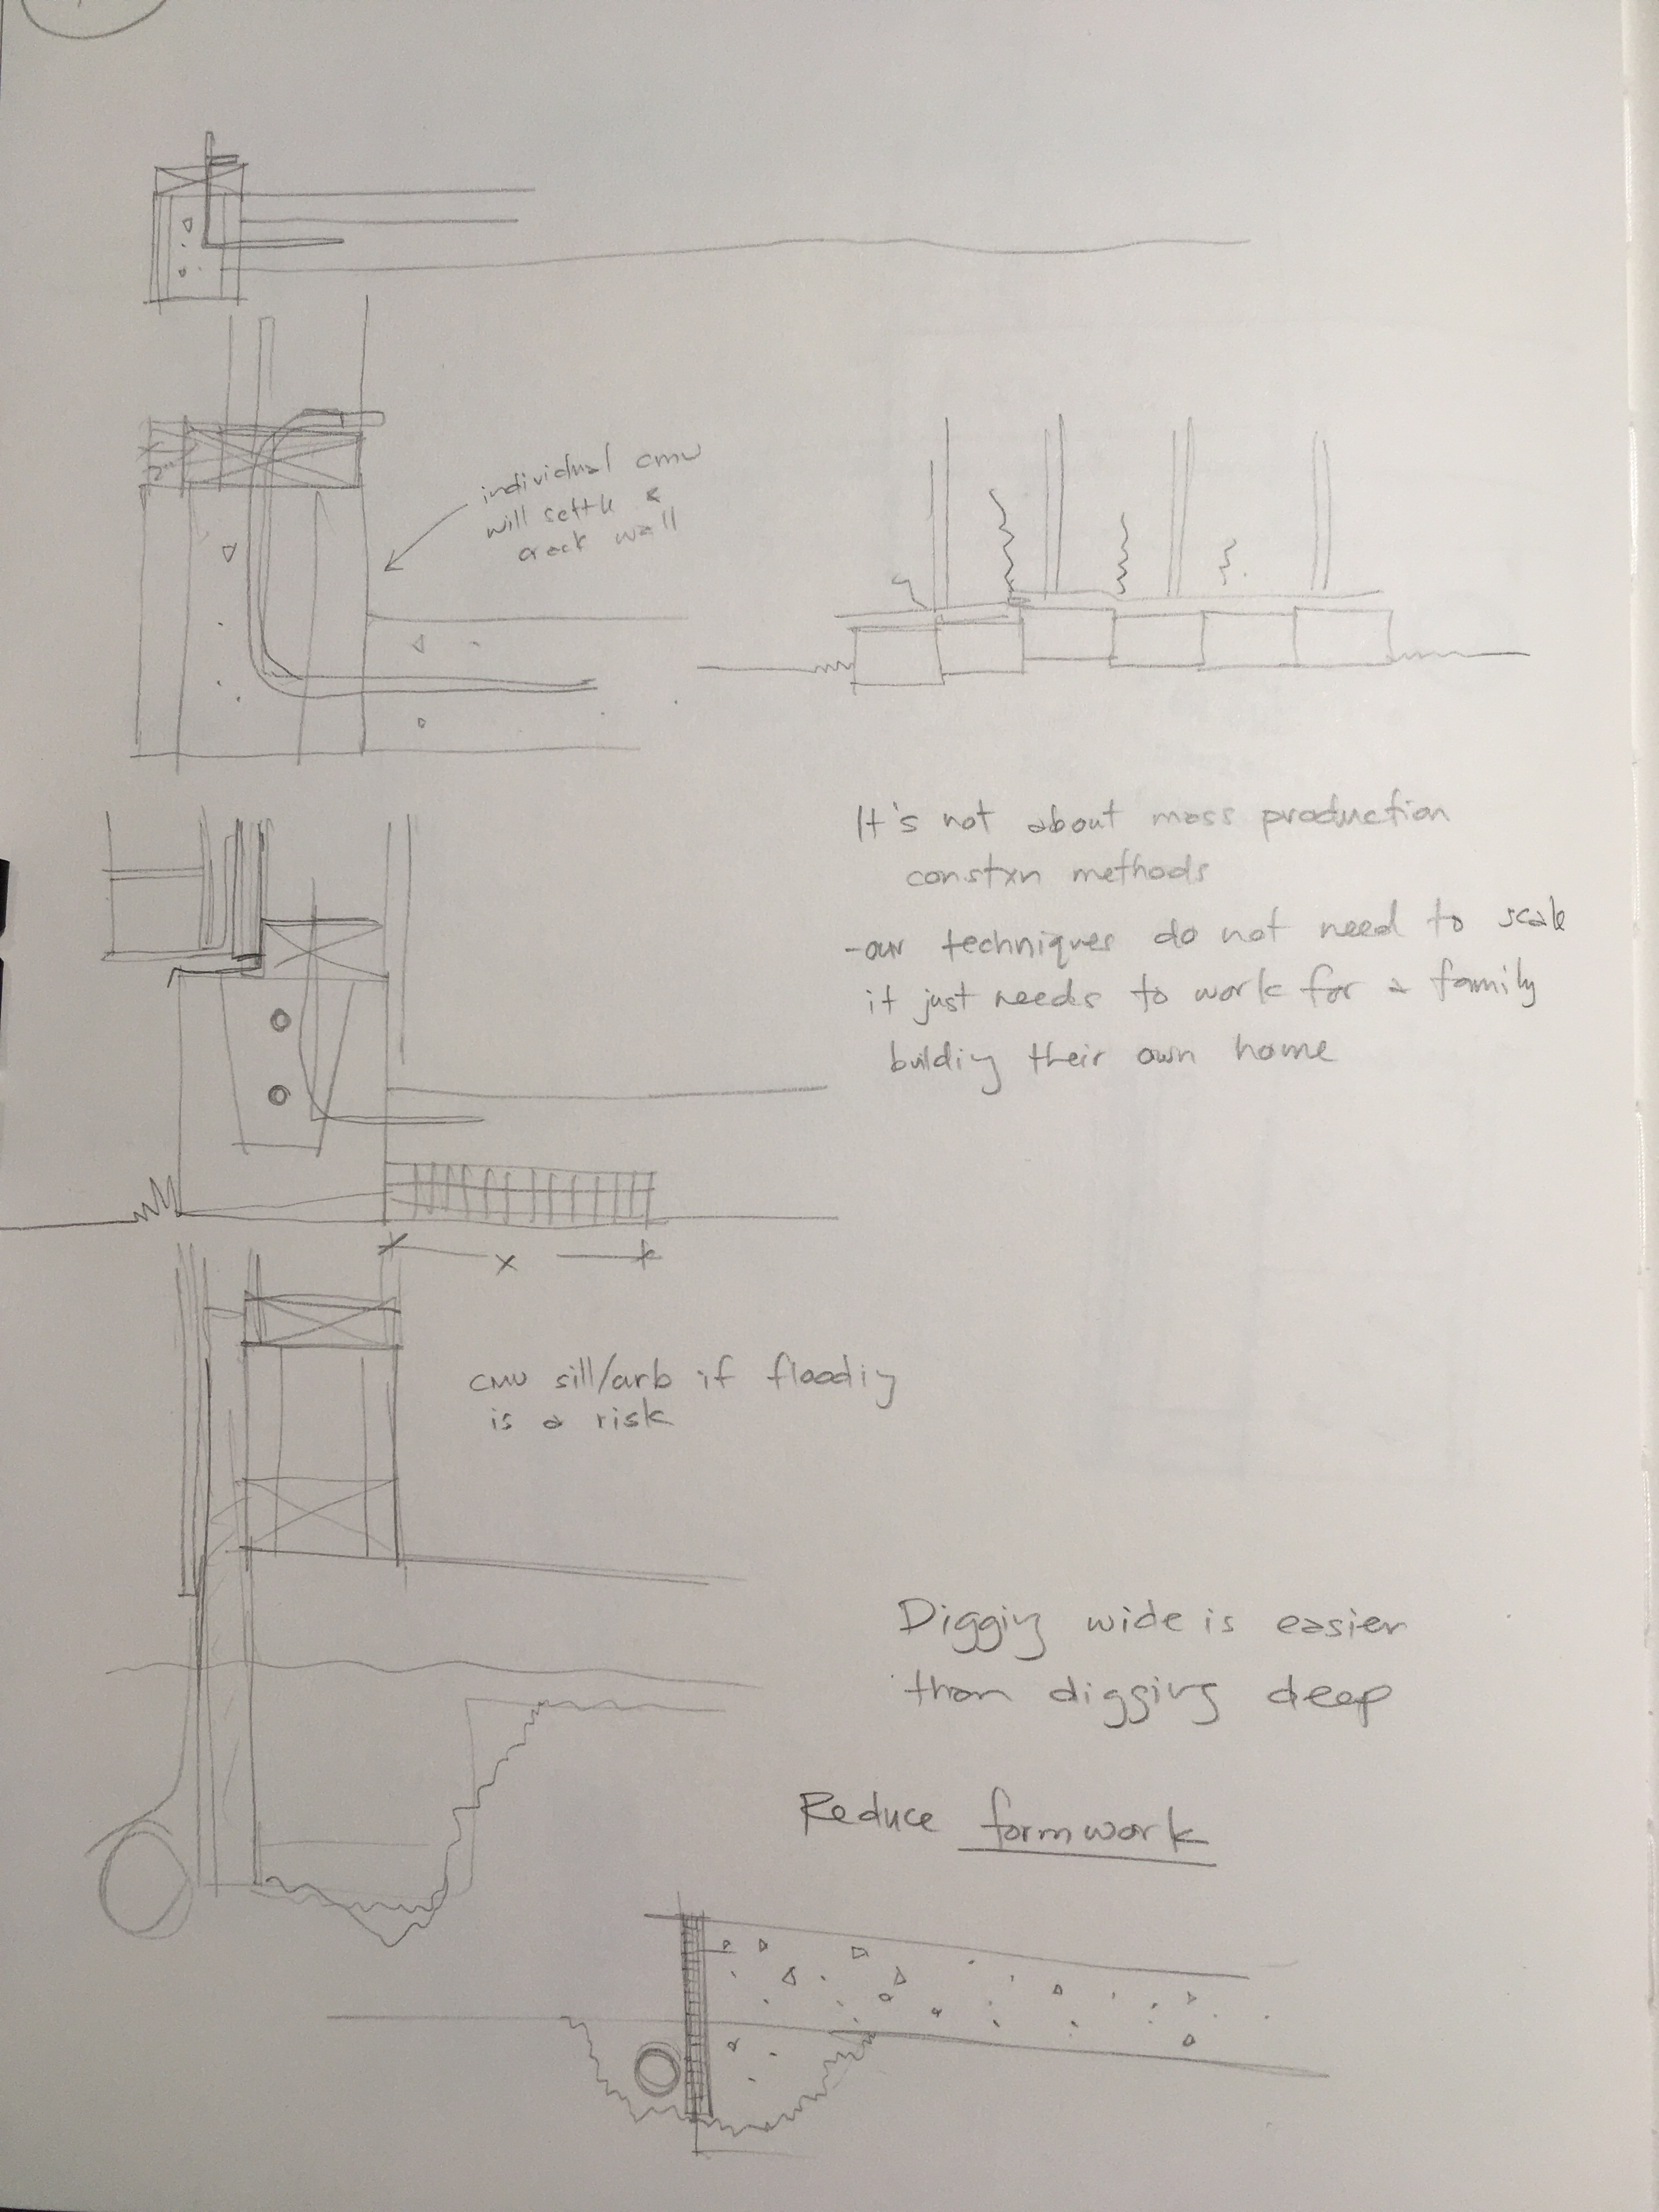 individual cmu
will settle &
crack wall
It's not about mass production
constxn methods
-our techniques do not need to scale
it just needs to work for a family
buildiy their own home
x
cmu sill/curb if floodiy
is a risk
Diggiy wide is easier
than digging deep
Reduce formwork